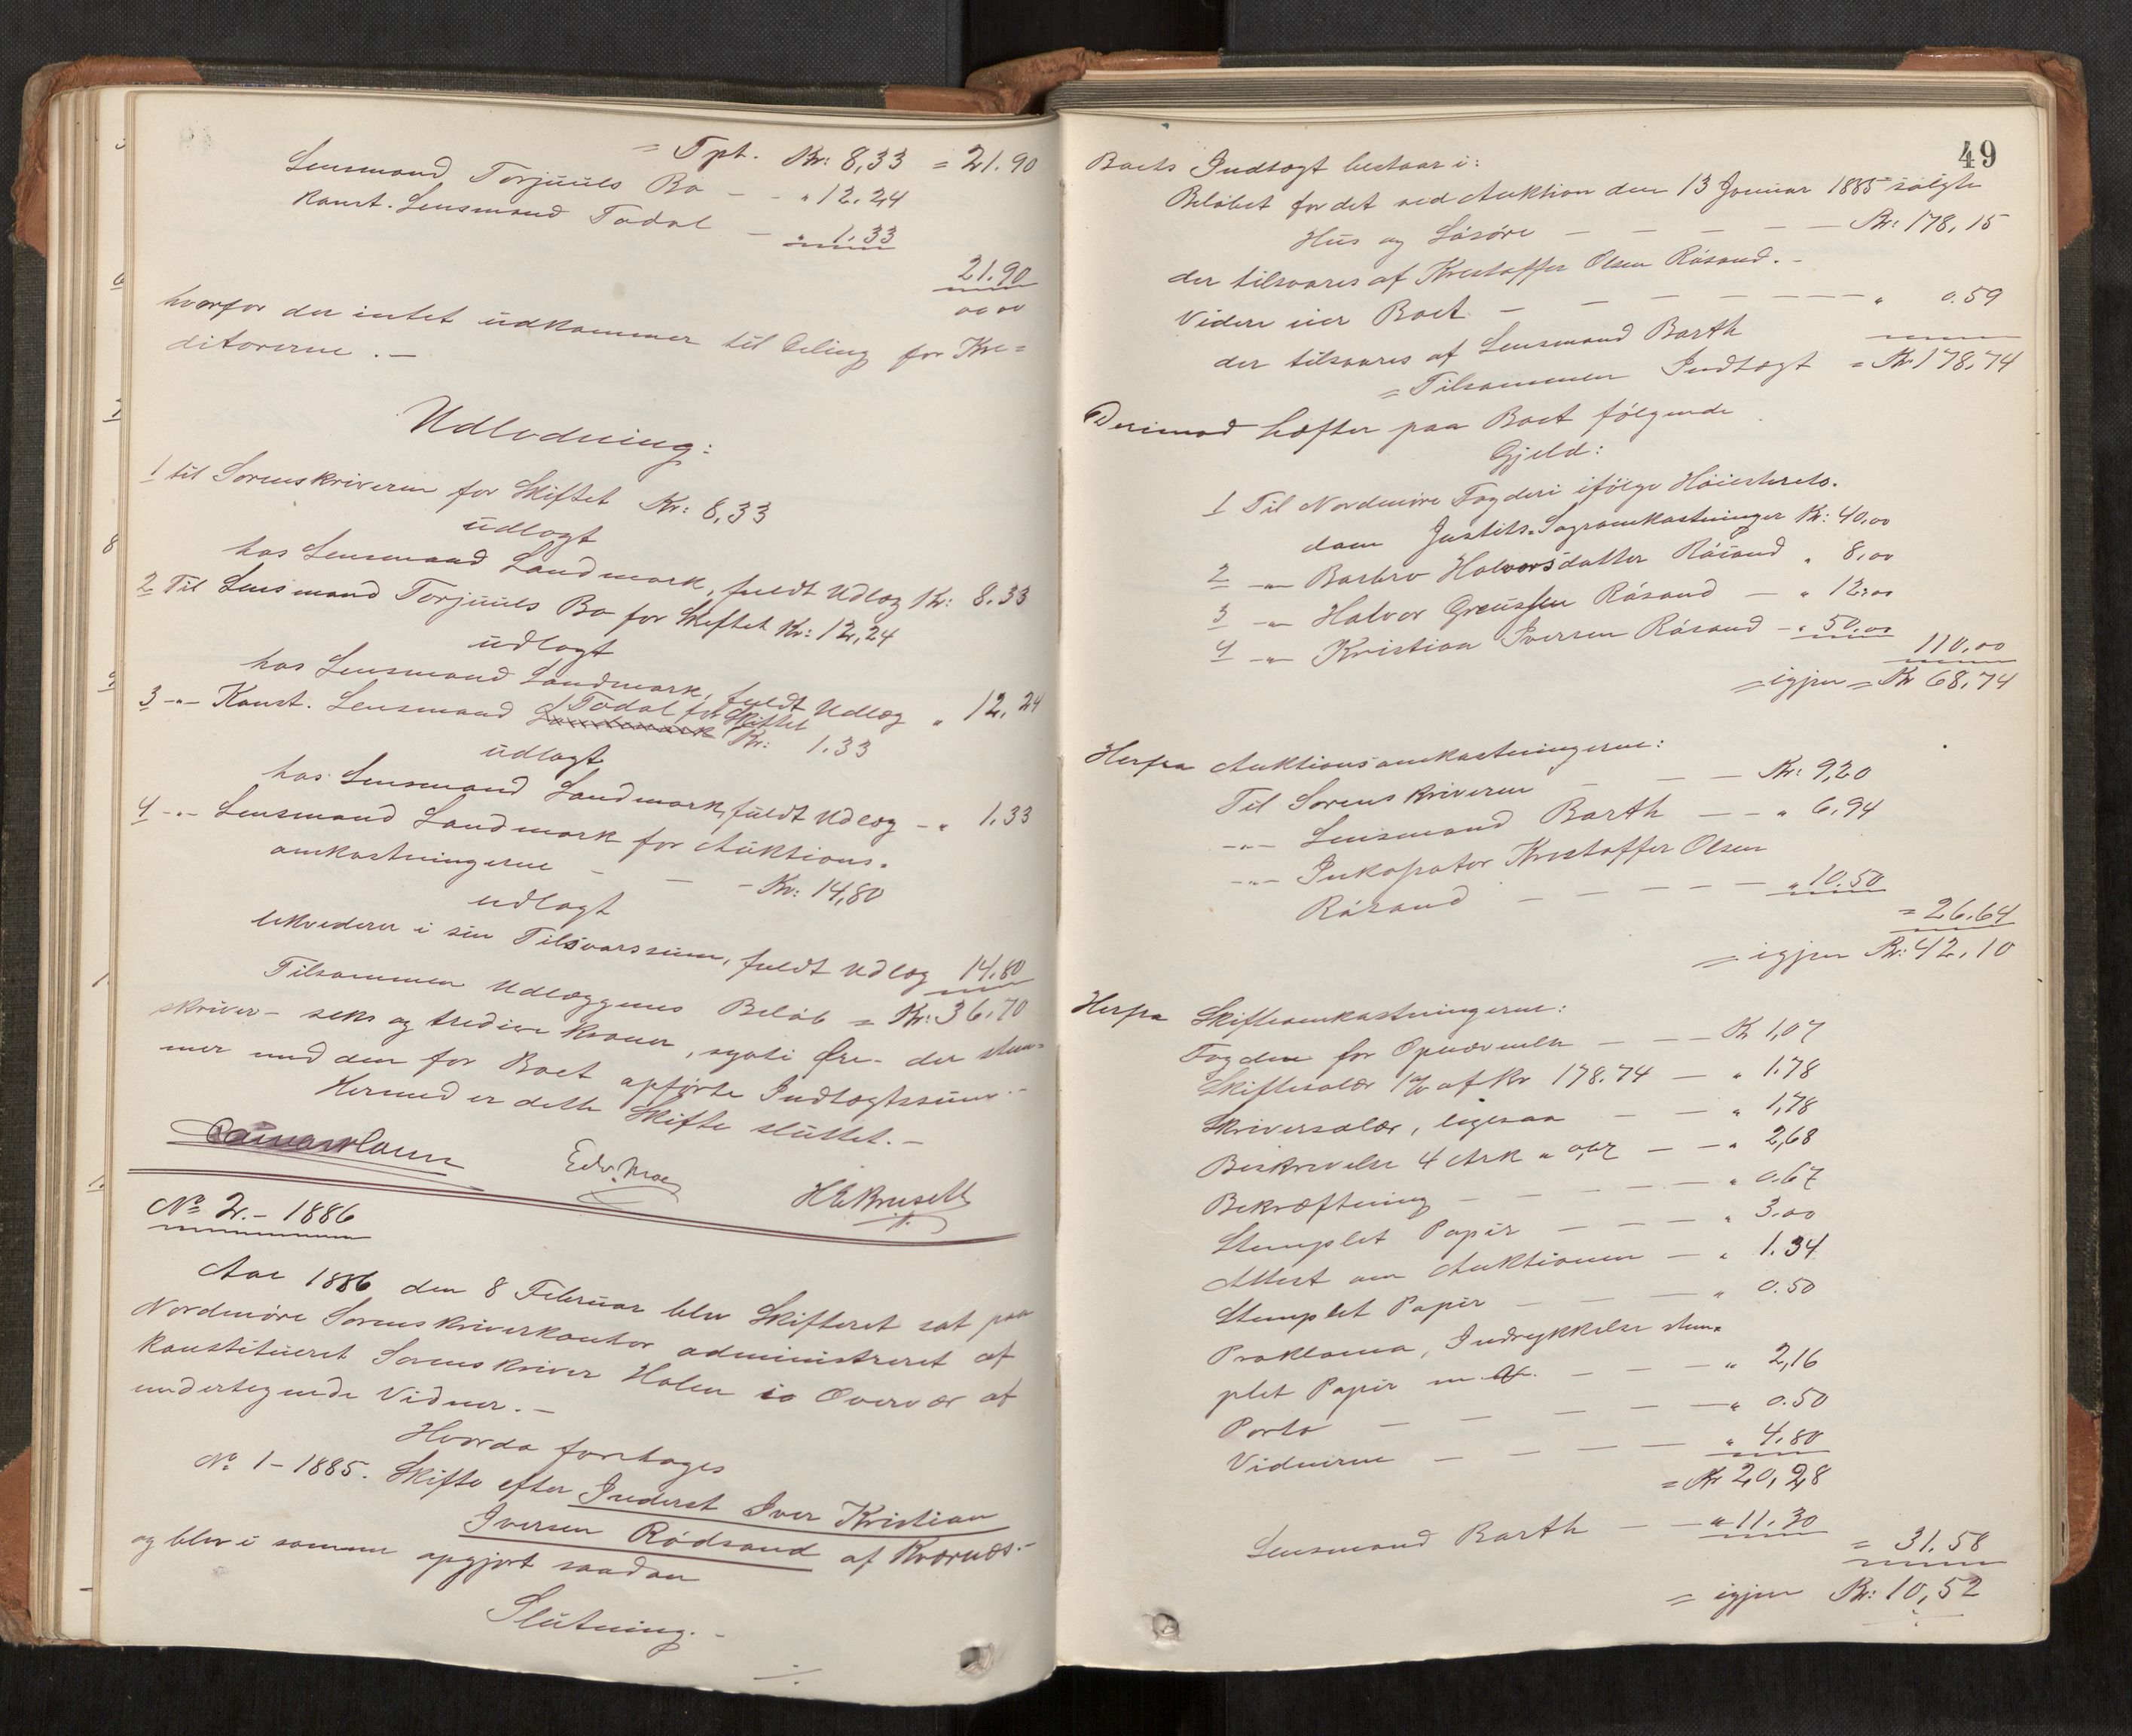 = Tpt. Kr: 8,33 = 21.90
Lensmand Torjuuls Bo - - " 12.24
Konst. Lensmand Todal - " 1.33
21.90
00 00
hvorfor der intet udkommer til Deling for Kre=
ditorerne. -
Udlodning:
1 til Sorenskriveren for Skiftet Kr: 8,33
udlagt
hos Lensmand Landmark, fuldt Udlæg Kr: 8.33
2 Til Lensmand Torjuuls Bo for Skiftet Kr: 12,24
udlagt
hos Lensmand Landmark, fuldt Udlæg " 12.24
3 -"- Konst. Lensmand Todal for Skiftet
Kr: 1.33
udlagt
hos Lensmand Landmark, fuldt Udlæg - " 1.33
4 -"- Lensmand Landmark for Auktions-
omkostningerne - - - Kr: 14,80
udlagt
likviderer i sin Tilsvarssum, fuldt Udlæg 14.80
Tilsammen Udlæggenes Beløb = Kr: 36.70
skriver - seks og tredive kroner, sytti Øre - der stem=
mer med den for Boet opførte Indtægtssum. -
Hermed er dette Skifte sluttet. -
Edv. Moe
H E Kruseth
No 2. - 1886
Aar 1886 den 8 Februar blev Skifteret sat paa
Nordmøre Sorenskriverkontor administreret af
konstitueret Sorenskriver Holen i Overvær af
undertegnede Vidner. -
Hvorda foretages
No 1 - 1885. Skifte efter Inderst Iver Kristian
Iversen Rødsand af Kværnæs. -
og blev i samme opgjort saadan
Slutning. -
49
Boets Indtægt bestaar i:
Beløbet for det ved Auktion den 13 Januar 1885 solgte
Hus og Løsøre - - - - - Kr: 178,15
der tilsvares af Kristoffer Olsen Røsand. -
Videre eier Boet - - - - - - " 0.59
der tilsvares af Lensmand Barth
= Tilsammen Indtægt = Kr 178.74
Derimod hæfter paa Boet følgende
Gjeld:
1 Til Nordmøre Fogderi ifølge Høiesterets-
dom Justits-Sagsomkostninger Kr: 40,00
2 -"- Barbro Halvorsdatter Røsand " 8,00
3 -"- Halvor Greussen Røsand - " 12,00
4 -"- Kristian Iversen Røsand - " 50,00
110,00
= igjen = Kr 68,74
Herfra Auktionsomkostningerne:
Til Sorenskriveren - - - Kr: 9,20
-"- Lensmand Barth - - " 6.94
-"- Inkassator Kristoffer Olsen
Røsand - - - - - " 10.50
= 26.64
= igjen Kr: 42.10
Herfra Skifteomkostningerne:
Fogden for Opnævnelse - - - Kr 1,07
Skiftesalær 1% af Kr 178.74 - " 1.78
Skriversalær, ligesaa - - " 1,78
Beskrivelse 4 Ark a 0,67 - - " 2,68
Bekræftning - - - - - " 0.67
Stemplet Papir - - - - " 3.00
Attest om Auktionen - " 1.34
Stemplet Papir - - - " 0.50
Proklama, Indrykkelse stem=
plet Papir m. - - - " 2,16
Porto - - - - - " 0.50
Vidnerne - - - - " 4.80
= Kr 20,28
Lensmand Barth - - " 11.30
= 31.58
= igjen Kr: 10,52